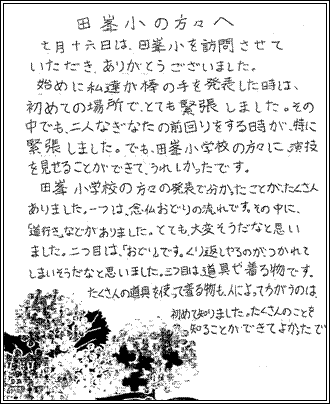 田峯小の方々へ
七月十六日は、田峯小を訪問させて
いただき、ありがとうございました。
始めに私達が棒の手を発表した時は、
初めての場所で、とても緊張しました。その
中でも、二人なぎなたの前回りをする時が、特に
緊張しました。でも、田峯小学校の方々に、演技
を見せることができて、うれしかったです。
田峯小学校の方々の発表で分かったことが、たくさん
ありました。一つは、念仏おどりの流れです。その中に、
「道行き」などがありました。とても、大変そうだなと思い
ました。二つ目は、「おどり」です。くり返しやるのがつかれて
しまいそうだなと思いました。三つ目は、道具や着る物です。
たくさんの道具を使って着る物も、人によってちがうのは、
初めて知りました。たくさんのことを
知ることができてよかったで